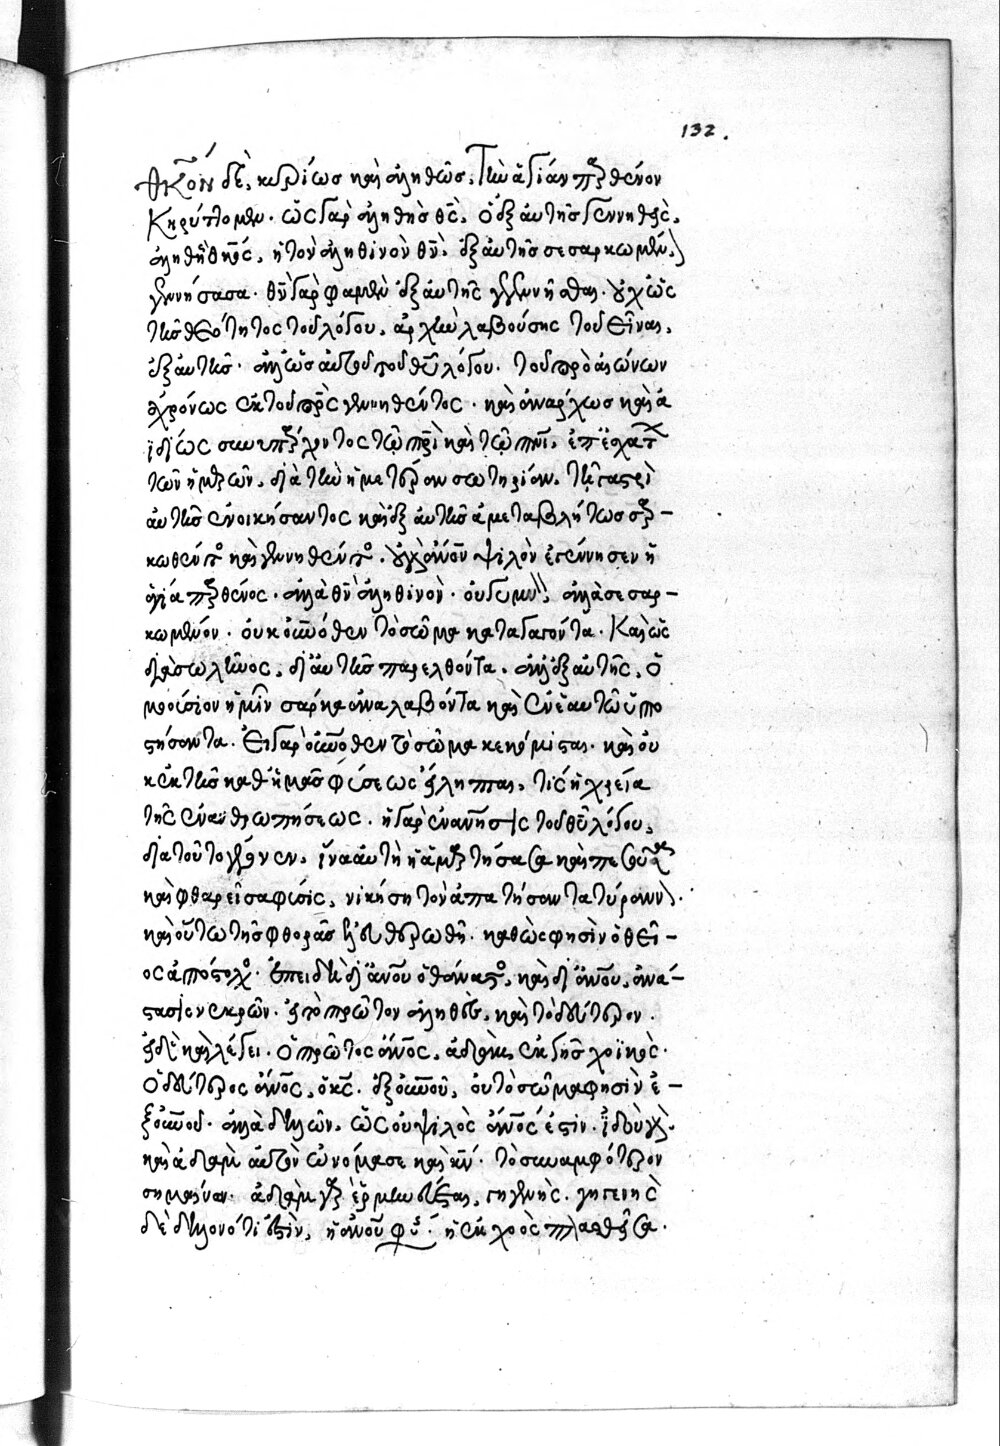 132.
Θκον δὲ, κυρίως καὶ ἀληθῶς, τὴν ἁγίαν παρθένον
κηρύττομεν. ὡς γὰρ ἀληθὴς θς, ὁ ἐξ αὐτῆς γεννηθεὶς,
ἀληθὴς θκος, ἡ τὸν ἀληθινὸν θν, ἐξ αὐτῆς σεσαρκωμένον
γεννήσασα. θν γάρ φαμεν ἐξ αὐτῆς γεγενῆσθαι. οὐχ ὡς
τῆς θεότητος τοῦ λόγου, ἀρχὴν λαβούσης τοῦ εἶναι,
ἐξ αὐτῆς. ἀλλ' ὡς αὐτοῦ τοῦ θυ λόγου. τοῦ πρὸ αἰώνων
ἀχρόνως ἐκ τοῦ πρς γεννηθέντος. καὶ ἀνάρχως καὶ ἀ
ϊδίως συνυπάρχοντος τῷ πρὶ καὶ τῷ πνι, ἐπ' ἐσχάτων
τῶν ἡμερῶν, διὰ τὴν ἡμετέραν σωτηρίαν, τῇ γαστρὶ
αὐτῆς ἐνοικήσαντος καὶ ἐξ αὐτῆς ἀμεταβλήτως σαρ-
κωθέντος καὶ γεννηθέντος. οὐ γὰρ ἄνον ψιλὸν ἐγέννησεν ἡ
ἁγία παρθένος. ἀλλὰ θν ἀληθινὸν. οὐ γυμνὸν, ἀλλὰ σεσαρ-
κωμένον. οὐκ οὐνόθεν τὸ σῶμα καταγαγόντα. καὶ ὡς
διὰ σωλῆνος, δι' αὐτῆς παρελθόντα. ἀλλ' ἐξ αὐτῆς, ὁ
μοούσιον ἡμῖν σάρκα ἀναλαβόντα καὶ ἐν ἑαυτῷ ὑπο
στήσαντα. Εἰ γὰρ οὐνόθεν τὸ σῶμα κεκόμισται. καὶ οὐ
κ ἐκ τῆς καθ' ἡμᾶς φύσεως εἴληπται, τίς ἡ χρεία
τῆς ἐνανθρωπήσεως. ἡ γὰρ ἐνανησις τοῦ θυ λόγου,
διὰ τοῦτο γέγονεν, ἵνα αὐτὴ ἡ ἁμαρτήσασα καὶ πεσοῦσα
καὶ φθαρεῖσα φύσις, νικήσῃ τὸν ἀπατήσαντα τύραννον.
καὶ οὕτω τῆς φθορᾶς ἐλευθερωθῇ. καθώς φησὶν ὁ θεῖ-
ος ἀπόστολος. ἐπειδὴ δι' ἄνου ὁ θάνατος, καὶ δι' ἄνου, ἀνά-
στασις νεκρῶν. εἰ τὸ πρῶτον ἀληθὲς, καὶ τὸ δεύτερον.
εἰ δὲ καὶ λέγει. ὁ πρῶτος ἄνος, ἀδὰμ, ἐκ γῆς χοϊκὸς.
ὁ δεύτερος ἄνος, ὁ κς. ἐξ οὐνοῦ, οὐ τὸ σῶμα φησὶν ἐ-
ξ οὐνοῦ. ἀλλὰ δηλῶν, ὡς οὐ ψιλὸς ἄνος ἐστὶν. ἰδοὺ γὰρ.
καὶ ἀδὰμ αὐτὸν ὠνόμασε καὶ κν. τὸ συναμφότερον
σημαίνων. ἀδὰμ γὰρ ἑρμηνεύεται, γηγενής. γηγενὴς
δὲ δηλονότι ἐστὶν, ἡ ἀνου φύσις. ἡ ἐκ χοὸς πλασθεῖσα.